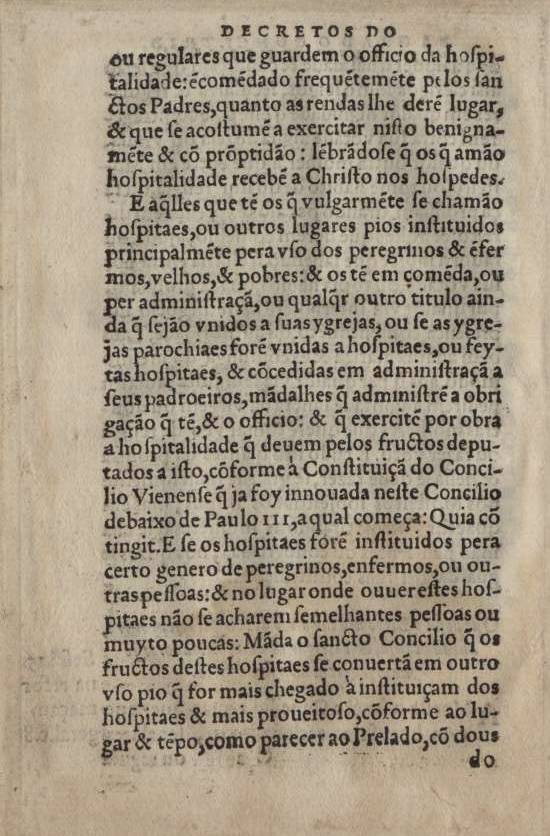 DECRETOS DO
ou regulares que guardem o officio da hoſpi-
talidade:ẽcomẽdado frequẽtemẽte pelos ſan
ctos Padres,quanto as rendas lhe derẽ lugar,
& que ſe acoſtumẽ a exercitar niſto benigna-
mẽte & cõ prõptidão : lẽbrãdoſe q̃ os q̃ amão
hoſpitalidade recebẽ a Chriſto nos hoſpedes.
E aq̃lles que tẽ os q̃ vulgarmẽte ſe chamão
hoſpitaes,ou outros lugares pios inſtituidos
principalmẽte pera vſo dos peregrinos & ẽfer
mos,velhos,& pobres:& os tẽ em çomẽda,ou
per adminiſtraçã,ou qualq̃r outro titulo ain-
da q̃ ſejão vnidos a ſuas ygrejas, ou ſe as ygre-
jas parochiaes forẽ vnidas a hoſpitaes,ou fey-
tas hoſpitaes, & cõcedidas em adminiſtraçã a
ſeus padroeiros,mãdalhes q̃ adminiſtrẽ a obri
gação q̃ tẽ,& o officio: & q̃ exercitẽ por obra
a hoſpitalidade q̃ deuem pelos fructos depu-
tados a iſto,cõforme à Conſtituiçã do Conci-
lio Vienenſe q̃ ja foy innouada neſte Concilio
debaixo de Paulo III,a qual começa: Quia cõ
tingit.E ſe os hoſpitaes forẽ inſtituidos pera
certo genero de peregrinos,enfermos,ou ou-
tras peſſoas:& no lugar onde ouuer eſtes hoſ-
pitaes não ſe acharem ſemelhantes peſſoas ou
muyto poucas: Mãda o ſancto Concilio q̃ os
fructos deſtes hoſpitaes ſe conuertã em outro
vſo pio q̃ for mais chegado à inſtituiçam dos
hoſpitaes & mais proueitoſo,cõforme ao lu-
gar & tẽpo,como parecer ao Prelado,cõ dous
do